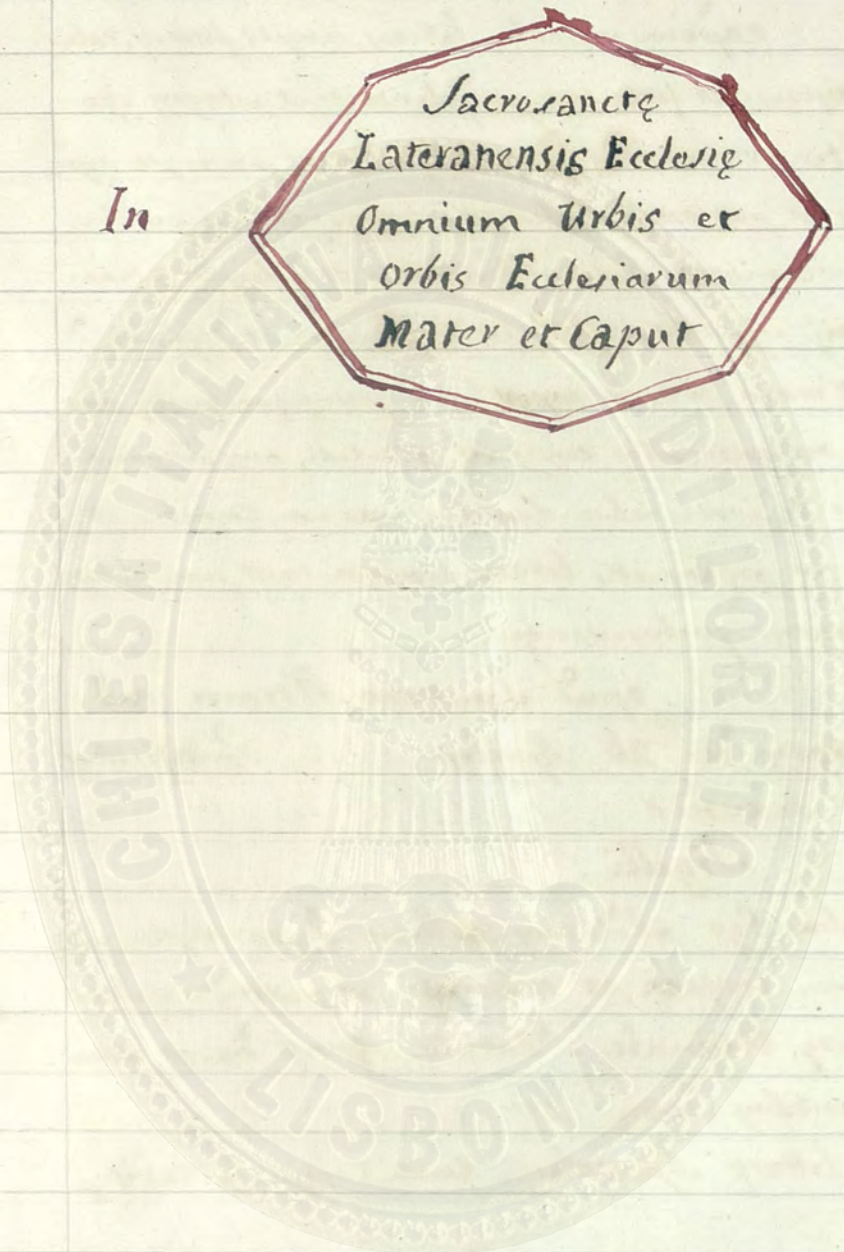 In
Sacrosanctę
Lateranensis Ecclesię
Omnium Urbis et
Orbis Ecclesiarum
Mater et Caput
CHIESA ITALIANA DI N. S. DI LORETO
LISBONA